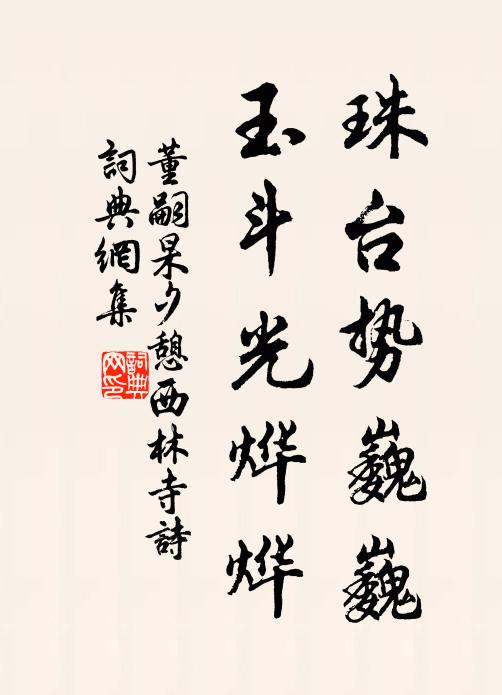 珠台势巍巍
玉斗光烨烨
董嗣杲夕憩西林寺詩
詞典網集
詞典网印